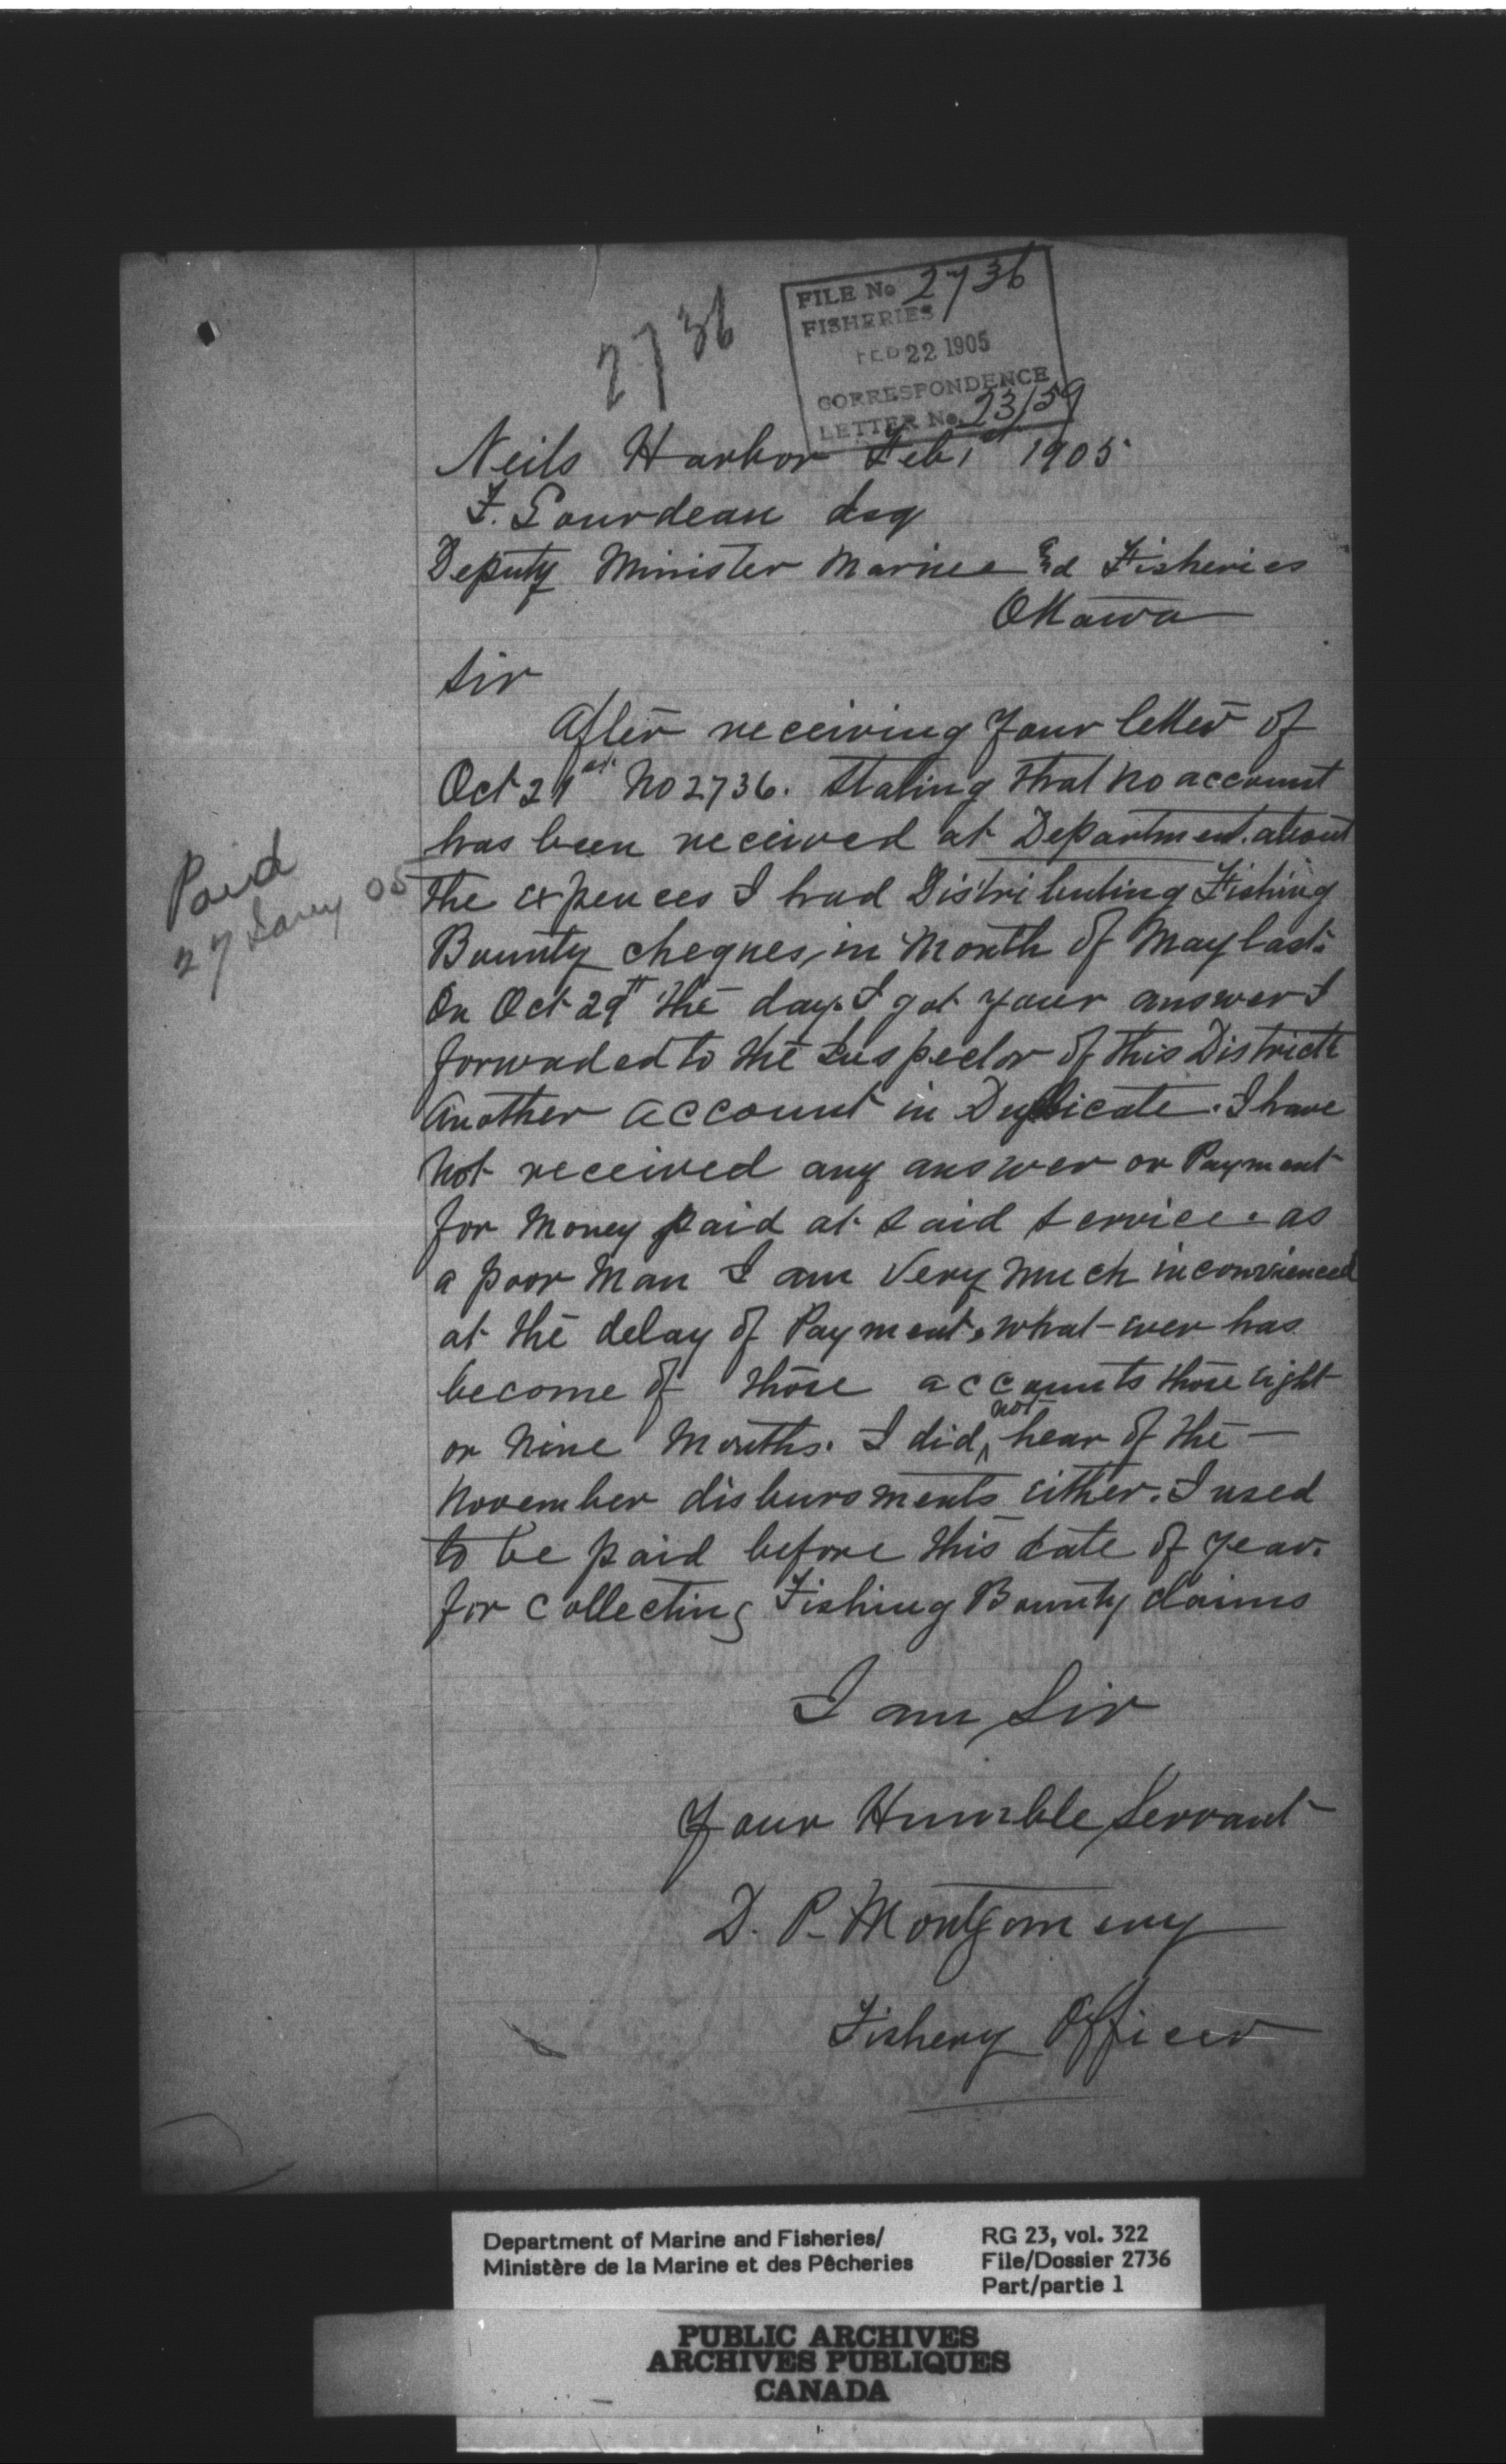 2736
FILE No 2736
FISHERIES
FEB 22 1905
CORRESPONDENCE
LETTER No. 23159
Neils Harbor Feb 1st 1905
F. Gourdeau Esq
Deputy Minister Marine And Fisheries
Ottawa
Sir
After receiving Your letter of
Oct 21st No 2736. Stating that no account
has been received at Department. about
Paid
27 Jany 05
the expences I had Distributing Fishing
Bounty cheques, in Month of May last.
On Oct 29th the day I got your answer I
forwaded to the Inspector of this District
Another account in Duplicate. I have
Not received any answer or Payment
for Money paid at said service. as
a poor Man I am Very Much inconvienced
at the delay of Payment. what-ever has
become of those accounts those eight
or Nine Months. I did not hear of the -
November disbursments either. I used
to be paid before this date of year.
for Collecting Fishing Bounty claims
I am Sir
Your Humble Servant
D. P. Montgomery
Fishery Officer
Department of Marine and Fisheries/
Ministère de la Marine et des Pêcheries
RG 23, vol. 322
File/Dossier 2736
Part/partie 1
PUBLIC ARCHIVES
ARCHIVES PUBLIQUES
CANADA